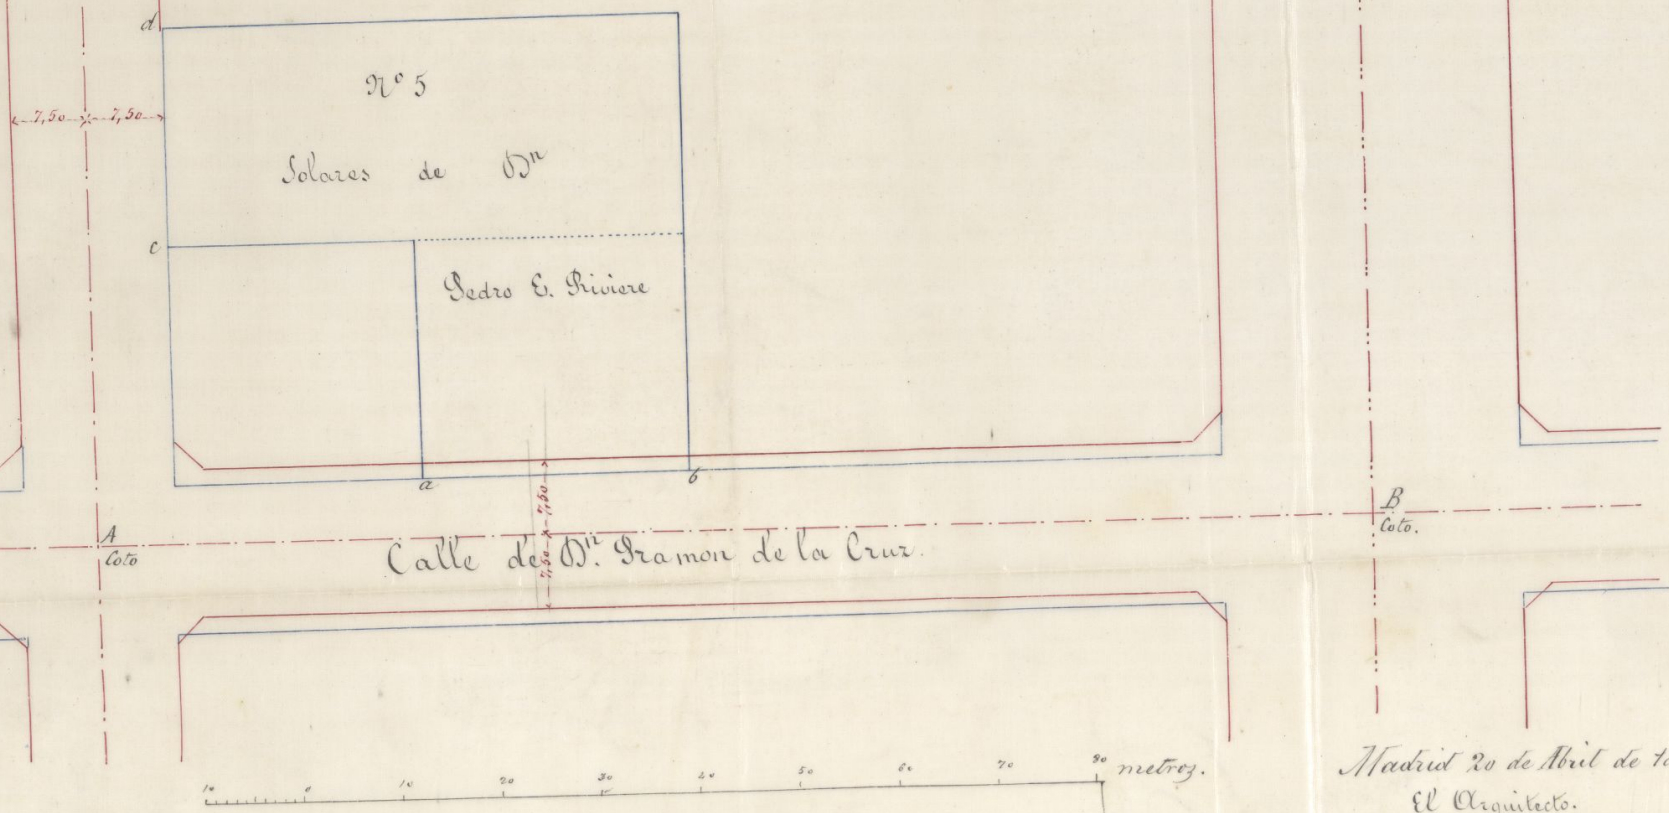 d
Nº 5
7,50 7,50
Solares de Dⁿ
c
Pedro E. Riviere
a
b
7,50
7,50
A
Coto
B
Coto.
Calle de Dⁿ. Ramon de la Cruz.
10 0 10 20 30 40 50 60 70 80 metros.
Madrid 20 de Abril de 1
El Arquitecto.